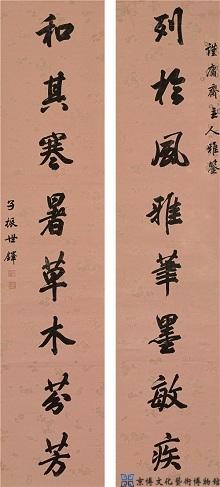 謹庸齋主人雅鑒
列於風雅筆墨敏疾
和其寒暑草木芬芳
振世鐸
京博文化藝術博物館